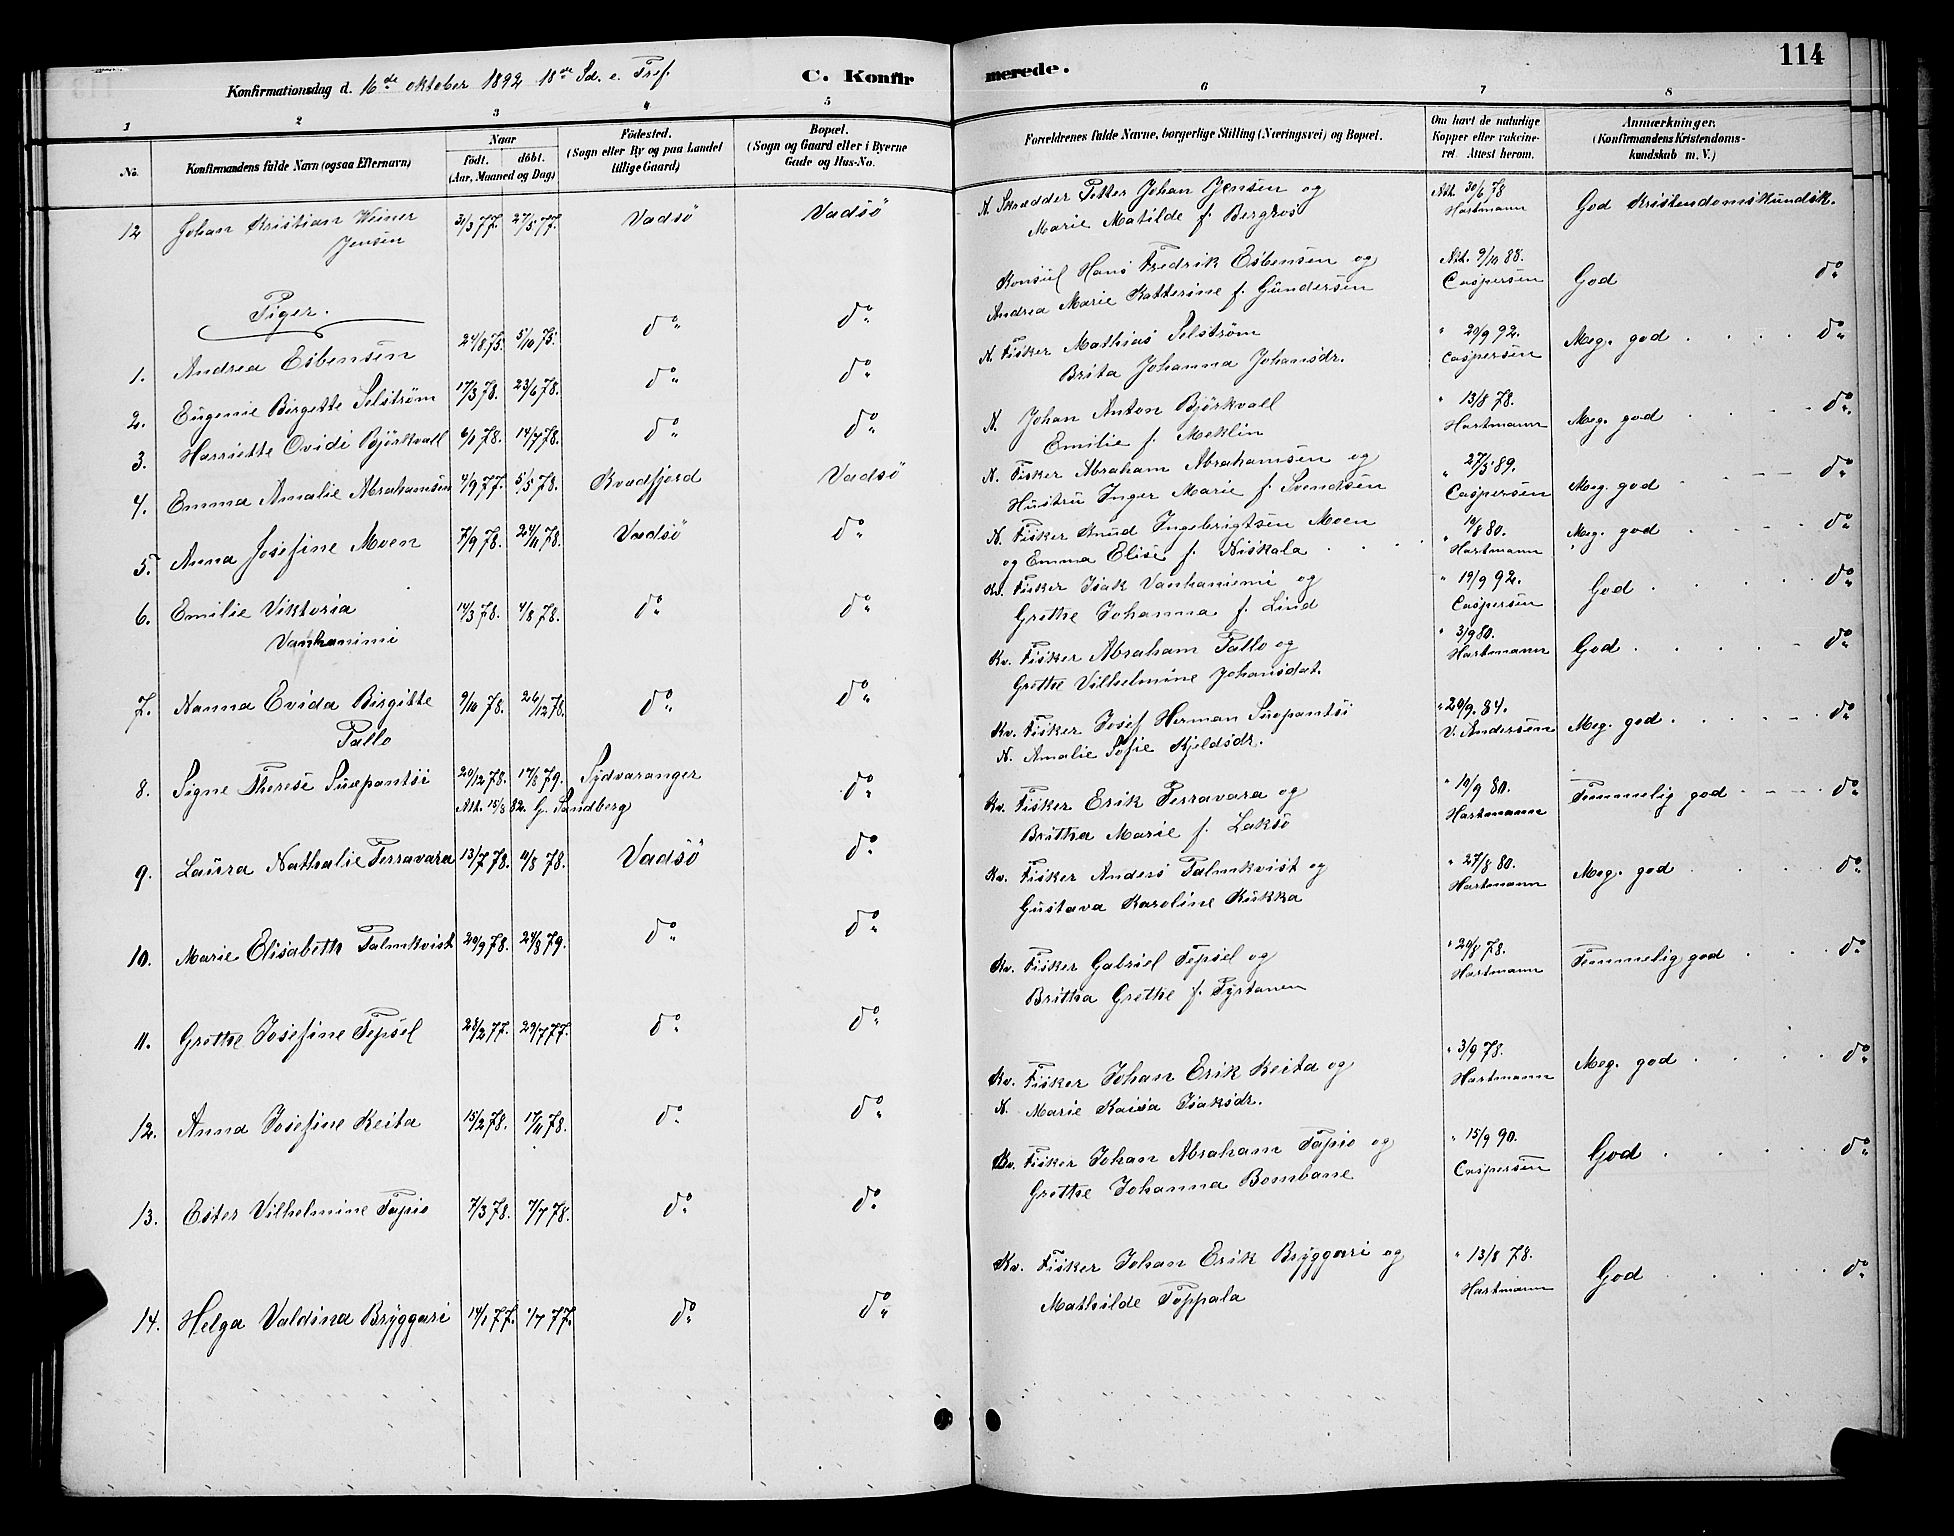 114
Konfirmationsdag d. 16de oktober 1892 18de Sd. e. Tref.
C. Konfirmerede.
1 2 3 4 5 6 7 8
No.
Konfirmandens fulde Navn (ogsaa Efternavn)
Naar
født. døbt.
(Aar, Maaned og Dag)
Födested.
(Sogn eller By og paa Landet
tillige Gaard)
Bopæl.
(Sogn og Gaard eller i Byerne
Gade og Hus-No.
Forældrenes fulde Navne, borgerlige Stilling (Næringsvei) og Bopæl.
Om havt de naturlige
Kopper eller vakcine-
ret. Attest herom.
Anmærkninger.
(Konfirmandens Kristendoms-
kundskab m. V.)
12 Johan Kristian Weiner
Jensen
31/3 77. 27/5 77. Vadsö Vadsö
N. Skrædder Petter Johan Jensen og
Marie Matilde f. Bergros
Att. 30/6 78
Hartmann
God Kristendomskundsk.
Piger.
1. Andrea Esbensen 24/8 75. 5/10 75. do do
Konsul Hans Fredrik Esbensen og
Andrea Marie Katterine f. Gundersen
Att. 9/10 88.
Caspersen
God do
2. Eugenie Birgette Selström 17/3 78. 23/6 78. do do
N. Fisker Mathias Selström
Brita Johanna Johansdr.
" 20/9 92.
Caspersen
Meg. god do
3. Harriette Ovidi Björkvall 6/1 78. 14/7 78. do do
N. Johan Anton Björkvall
Emilie f. Meklin
" 13/8 78.
Hartmann
Meg. god do
4. Emma Amalie Abrahamsen 4/9 77. 5/5 78. Kvadfjord Vadsö
N. Fisker Abraham Abrahamsen og
Hustru Inger Marie f. Svendsen
" 27/5 89.
Caspersen
Meg. god do
5. Anna Josefine Moen 7/9 78. 24/11 78. Vadsö do
N. Fisker Knud Ingebrigtsen Moen
og Emma Elise f. Niskala
" 19/8 80.
Hartmann
Meg. god do
6. Emilie Viktoria
Vanhanimi
14/3 78. 4/8 78. do do
Kv. Fisker Isak Vanhaniemi og
Grethe Johanna f. Lind
" 19/9 92.
Caspersen
God do
7. Nanna Evida Birgitte
Pallo
9/10 78. 26/12 78. do do
Kv. Fisker Abraham Pallo og
Grethe Vilhelmine Johansdat.
" 3/9 80.
Hartmann
God do
8. Signe Therese Suopantsi 20/12 78. 17/8 79. Sydvaranger do
Att. 15/8 82. G. Sandberg
Kv. Fisker Josef Herman Suopantsi
N. Amalie Sofie Kjeldsdr.
" 29/9. 84.
V. Andersen
Meg. god do
9. Laura Nathalie Perravara 13/7 78. 11/8 78. Vadsö do
Kv. Fisker Erik Perravara og
Britha Marie f. Laksö
" 19/9 80.
Hartmann
Temmelig god do
10. Marie Elisabeth Palmkvist 20/9 78. 24/8 79. do do
Kv. Fisker Anders Palmkvist og
Gustava Karoline Kukka
" 27/8 80.
Hartmann
Meg. god do
11. Grethe Josefine Tepsel 28/2 77. 29/7 77. do do
Kv. Fisker Gabriel Tepsel og
Britha Grethe f. Tyrtanen
" 29/8 78.
Hartmann
Temmelig god do
12. Anna Josefine Keita 15/2 78. 17/11 78. do do
Kv. Fisker Johan Erik Keita og
N. Marie Kaisa Isaksdr.
" 3/9 78.
Hartmann
Meg. god do
13. Ester Vilhelmine Tapio 7/3 78. 7/7 78. do do
Kv. Fisker Johan Abraham Tapio og
Grethe Johanna Bombane
" 15/9 90.
Caspersen
God do
14. Helga Valdina Bryggari 14/1 77. 1/7 77. do do
Kv. Fisker Johan Erik Bryggari og
Mathilde Toppala
" 13/8 78.
Hartmann
God do